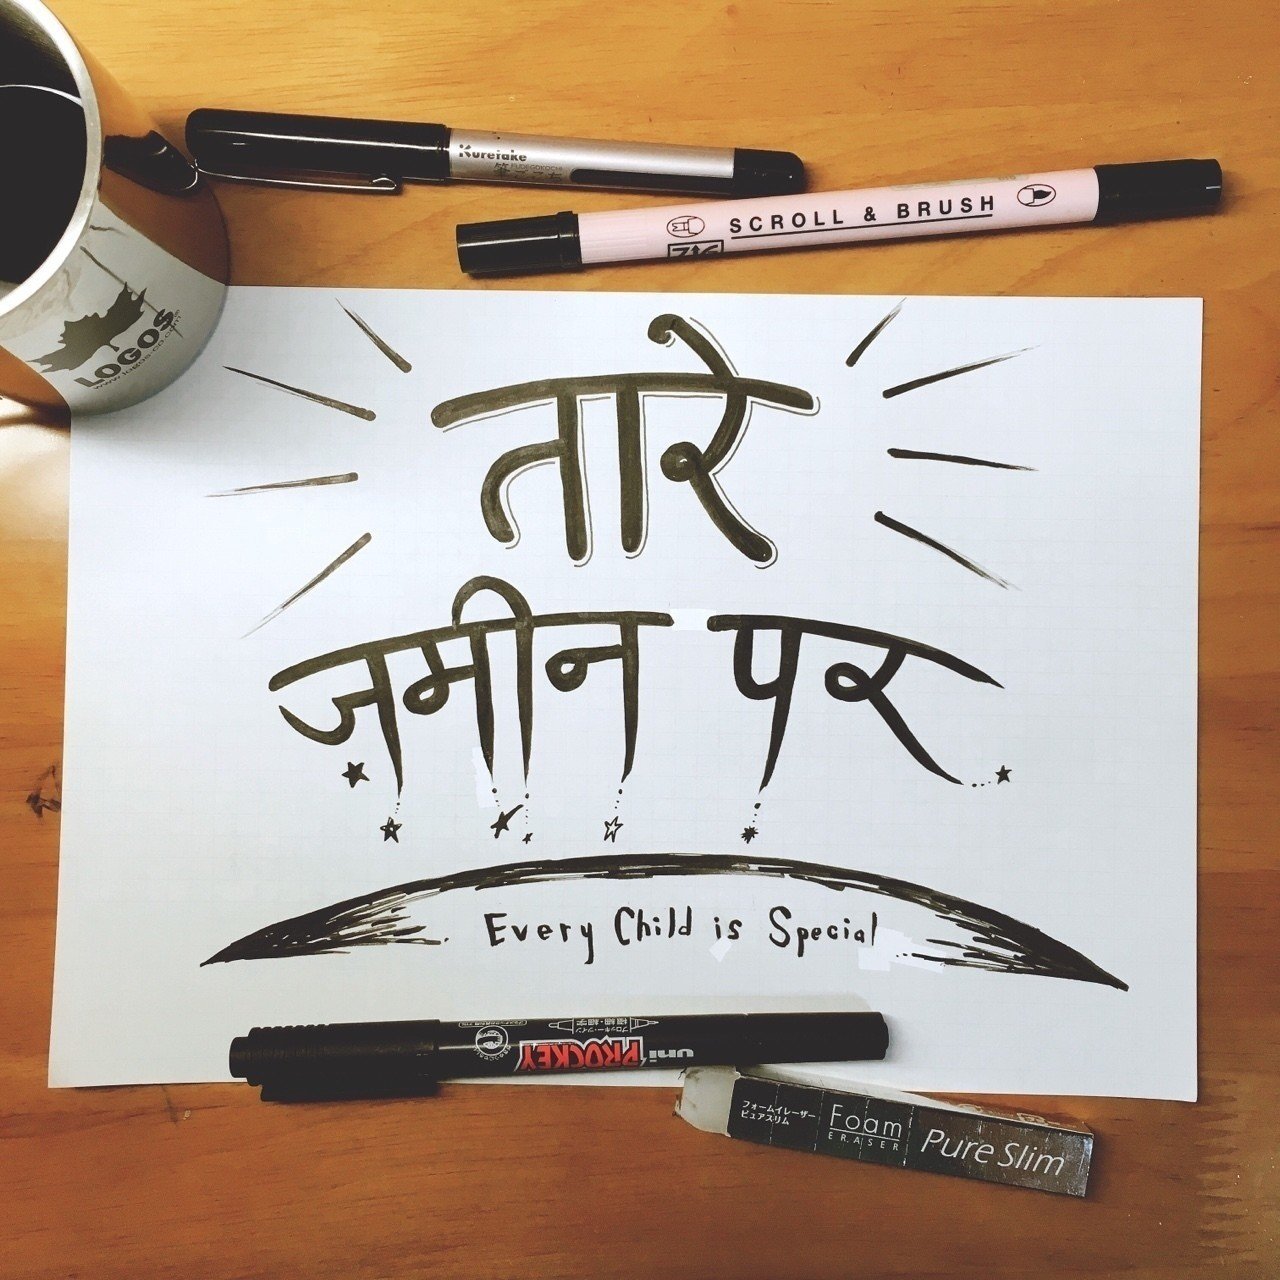 Kuretake
SCROLL & BRUSH
ZIG
LOGOS
www.logos-co.com
तारे
ज़मीन पर
Every Child is Special
uni PROCKEY
フォームイレーザー
ピュアスリム
Foam
ERASER
Pure Slim